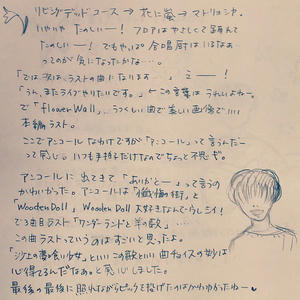 リビングデッドユース → 花に嵐 → マトリョシカ。
いやいや たのしー！ フロアはやさしくて踊んで
たのしいー！ でもやっぱ合唱厨はいるなぁ…
ってのが気になったかな…。
「では次はラストの曲になります…」 えー！
「うん、またライブやりたいです。」 ← この言葉は うれしいよねー。
で「flowerwall」…うつくしい曲で美しい画像で
本編ラスト。
ここでアンコールなわけですが「アンコール」って言うんだー
って感じ。いつも手拍子だけなのでちょっと不思ギ。
アンコールに出てきて「ありがとー」って言うの
かわいかった。アンコールは「懺悔の街」と
「WoodenDoll」 WoodenDoll 大好きなんでうらしイ！
で3曲目ラスト「ワンダーランドと羊の歌」…
この曲ラストっていうのはすごいと思ったよ。
「沙上の夢喰い少女」といいこの歌といい曲チョイスの妙は
心得てるんだなぁと感心しました。
最後の最後に照れながらピックを投げたのはかわいかったねー